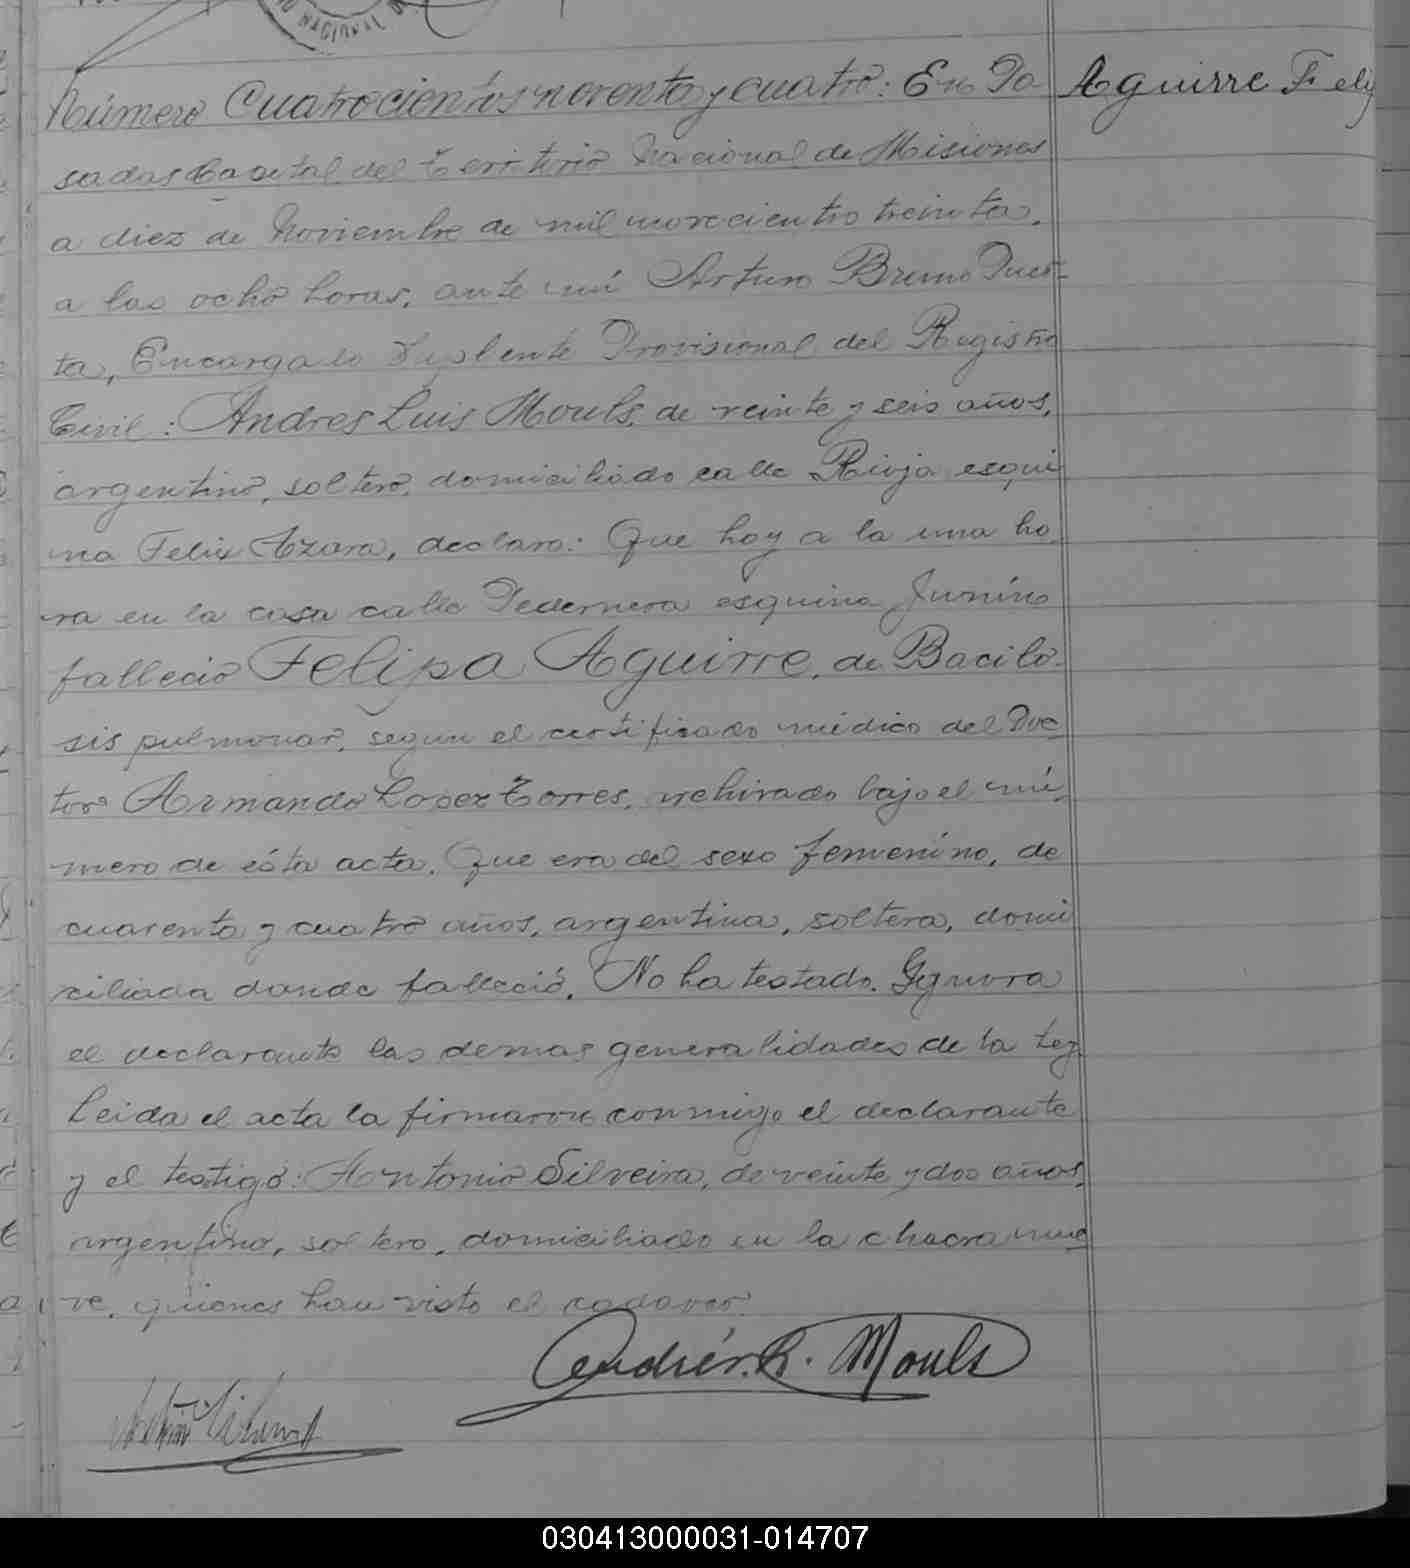 NACIONAL
Número Cuatrocientos noventa y cuatro: En Po
Aguirre Felip
sadas Capital del Territorio Nacional de Misiones
a diez de Noviembre de mil novecientro treinta,
a las ocho horas, ante mí Arturo Bruno Pues-
ta, Encargado Suplente Provisional del Registro
Civil: Andres Luis Mouls, de veinte y seis años,
argentino, soltero, domiciliado calle Rioja esqui
na Felix Azara, declaro: Que hoy a la una ho
ra en la casa calle Pedernera esquina Junino
falleció Felipa Aguirre, de Bacilo-
sis pulmonar, segun el certificado médico del Doc
tor Armando Lopez Torres, archivado bajo el nú
mero de ésta acta. Que era del sexo femenino, de
cuarenta y cuatro años, argentina, soltera, domi
ciliada donde falleció. No ha testado. Ygnora
el declarante las demas generalidades de la ley.
Leida el acta la firmaron conmigo el declarante
y el testigo: Antonio Silveira, de veinte y dos años,
argentino, soltero, domiciliado en la chacra nue
ve, quienes han visto el cadaver.
Andrés L. Mouls
030413000031-014707